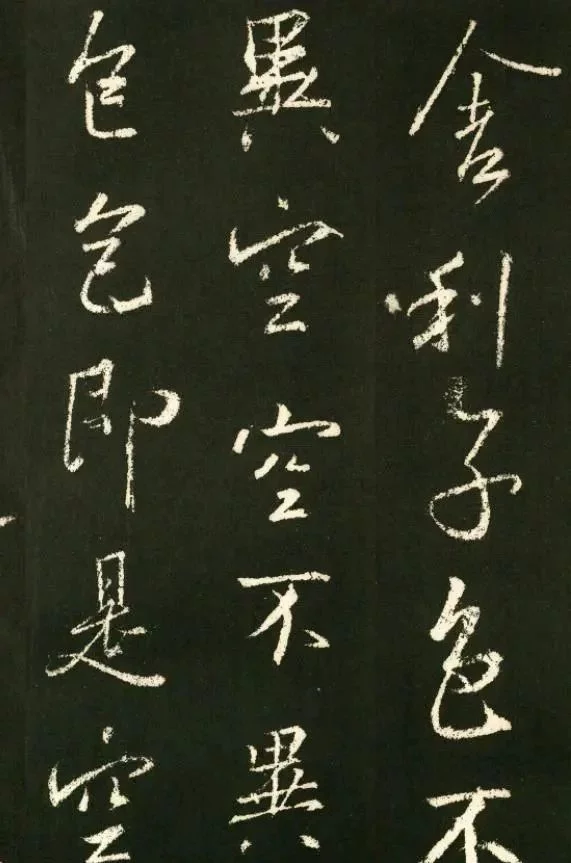 舍利子色不
異空空不異
色色即是空